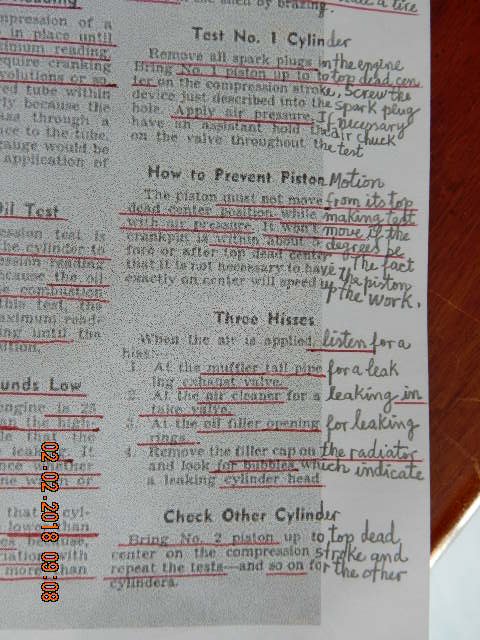 the shed by brazing.
Test No. 1 Cylinder
Remove all spark plugs in the engine
Bring No. 1 piston up to to top dead cen
ter on the compression stroke, Screw the
device just described into the spark plug
hole. Apply air pressure. If necessary
have an assistant hold the air chuck
on the valve throughout the test
How to Prevent Piston Motion
The piston must not move from its top
dead center position while making test
with air pressure. It won't move if the
crankpin is within about 3 degrees be
fore or after top dead center. The fact
that it is not necessary to have the piston
exactly on center will speed up the work.
Three Hisses
When the air is applied, listen for a
hiss:
1. At the muffler tail pipe for a leak
ing exhaust valve.
2. At the air cleaner for a leaking in
take valve.
3. At the oil filler opening for leaking
rings.
4. Remove the filler cap on the radiator
and look for bubbles which indicate
a leaking cylinder head
Check Other Cylinder
Bring No. 2 piston up to top dead
center on the compression stroke and
repeat the tests—and so on for the other
cylinders.
mpression of a
in place until
ximum reading
equire cranking
volutions or so
red tube within
ly because the
ass through a
ce to the tube.
auge would be
application of
Oil Test
ession test is
he cylinder to
ession reading
ecause the oil
e combustion
This test, the
aximum read-
ing until the
dition.
ounds Low
engine is 25
n the high-
le that the
leaking. If
nce whether
ne worn or
that cyl-
lower than
es because,
riation with
more than
02.02.2018 09:08